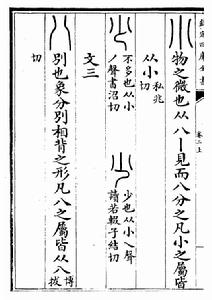 欽定四庫全書
卷二上
小 物之微也从八丨見而八分之凡小之屬皆
从小 私兆切
少 不多也从小丿聲書沼切 少也从小乀聲讀若輟子結切
文三
八 別也象分別相背之形凡八之屬皆从八 博拔
切